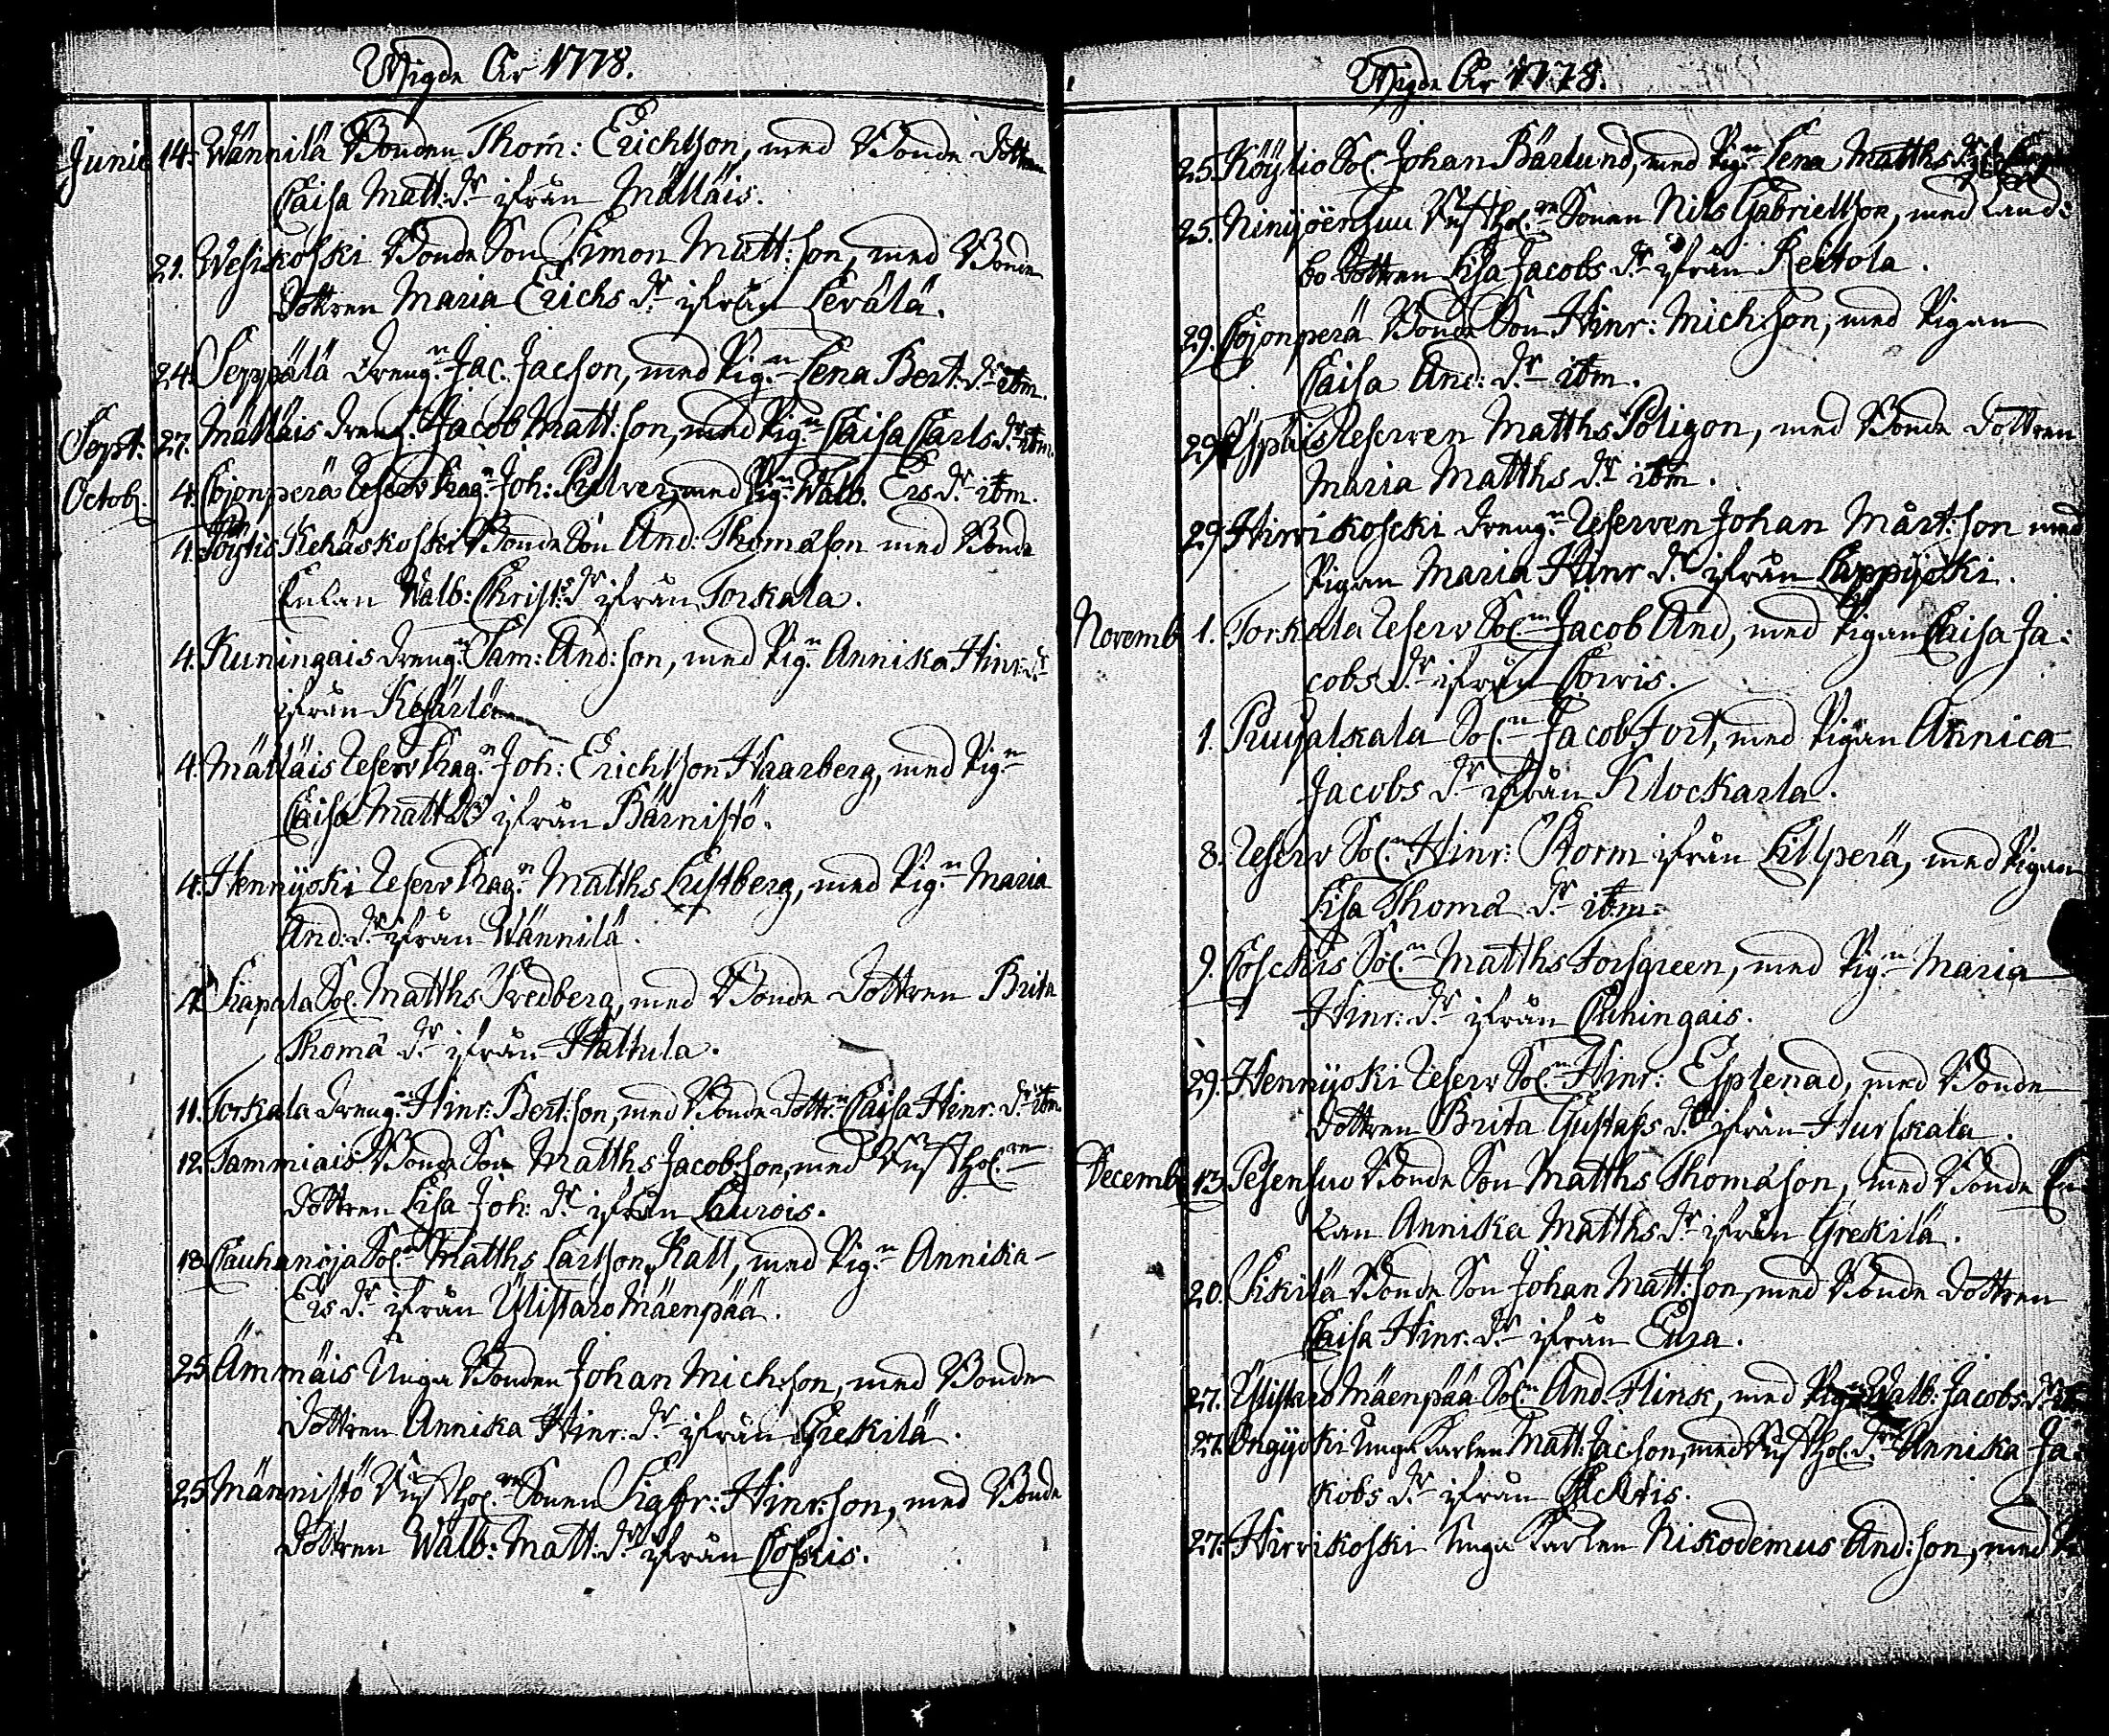 Wigde År 1778.
Junii 14. Wännilä Bonden Thom: Erichsson, med Bonde Dottren
Caisa Matt: dr ifrån Mälläis.
21. Wesikoski Bonde Son Simon Matt:son, med Bonde
Dottren Maria Erichs dr ifrån Lerälä.
24. Seppälä Dreng:n Jac. Jacson, med Pig:n Lena Bert: dr ibm.
Sept: 27. Mälläis Dreng:n Jacob Matt:son, med Pig:n Caisa Carls dr ibm.
Octob. 4. Cojonperä Reserv Drag:n Joh: med Pig:n Walb. Ers dr ibm.
4. Kehäskoski Bonde Son And: Thomasson med Bonde
Enkan Walb: Christ: dr ifrån Torkala.
4. Kuningais Dreng:n Sam: And:son, med Pig:n Annika Hinr: dr
ifrån
4. Mälläis Reserv Drag:n Joh: Erichsson Haarberg, med Pig:n
Caisa Matt dr ifrån Bärnistö.
4. Hennijoki Reserv Drag:n Matths Lustberg, med Pig:n Maria
And: dr ifrån Wännilä.
4. Matths med Bonde Dottren Brita
Thomä dr ifrån Hattula.
11. Torkala Dreng:n Hinr: Bert:son, med Bonde Dottr:n Caisa Hinr: dr ibm.
12. Tammiais Bonde Son Matths Jacobsson, med Rusthol:rn
Dottren Lisa Joh: dr ifrån Laurois.
18. Cauhanoja Sol:n Matths Carlsson Katt, med Pig:n Annika
Ers dr ifrån Ylistaro Mäenpää.
25. Ämmäis Unga Bonden Johan Michsson, med Bonde
Dottren Annika Hinr: dr ifrån Grekilä.
25. Männistö Rusthol:rn Sonen Sigfr: Hinr:son, med Bonde
Dottren Walb: Matt: dr ifrån Coskis.
Wigde År 1778.
25. Köÿlio Sol. Johan Bärlund, med Pig:n Lena Matths dr
25. Ninijoensuu Rusthol:rn Sonen Nils Gabrielsson, med Land:
bo Dottren Lisa Jacobs dr ifrån Keitola.
29. Cojonperä Bonde Son Hinr: Michsson, med Pigan
Caisa And: dr ibm.
29. Reserven Matths Poligon, med Bonde Dottren
Maria Matths dr ibm.
29. Hirvikoscki Dreng:n Reserven Johan Mårt:son med
Pigan Maria Hinr dr ifrån Lappijoki.
Novemb 1. Torkala Reserv Sol:n Jacob And, med Pigan Caisa Ja:
cobs dr ifrån Corvis.
1. Sol:n Jacob Fort, med Pigan Annica
Jacobs dr ifrån Klockarla.
8. Reserv Sol:n Hinr: Storm ifrån Lillperä, med Pigan
Lisa Thomä dr ibm.
9. Cosckis Sol:n Matths Forsgreen, med Pig:n Maria
Hinr: dr ifrån Cuningais.
29. Hennijoki Reserv Sol:n Hinr: Esplenad, med Bonde
Dottren Brita Gustafs dr ifrån Hurskala.
Decemb 13. Pesensuo Bonde Son Matths Thomasson, med Bonde En
kan Annika Matths dr ifrån Grekilä.
20. Sikilä Bonde Son Johan Matt:son, med Bonde Dottren
Caisa Hinr: dr ifrån Eura.
27. Ylistaro Mäenpää Sol:n And: Flink, med Pig:n Walb: Jacobs dr
27. Ongijoki Unga Karlen Matt: Jacson, med Rusthol. dr Annika Ja:
kobs dr ifrån
27. Hirvikoski Unga Karlen Nikodemus And:son, med